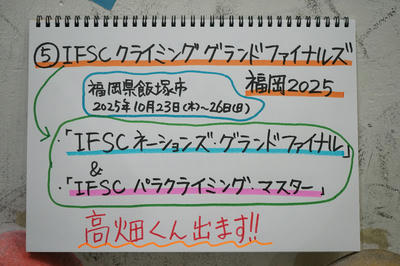 ⑤IFSCクライミンググランドファイナルズ
福岡2025
福岡県飯塚市
2025年10月23日(木)~26日(日)
・「IFSCネーションズ・グランドファイナル」
&
・「IFSCパラクライミング・マスター」
高畑くん出ます!!